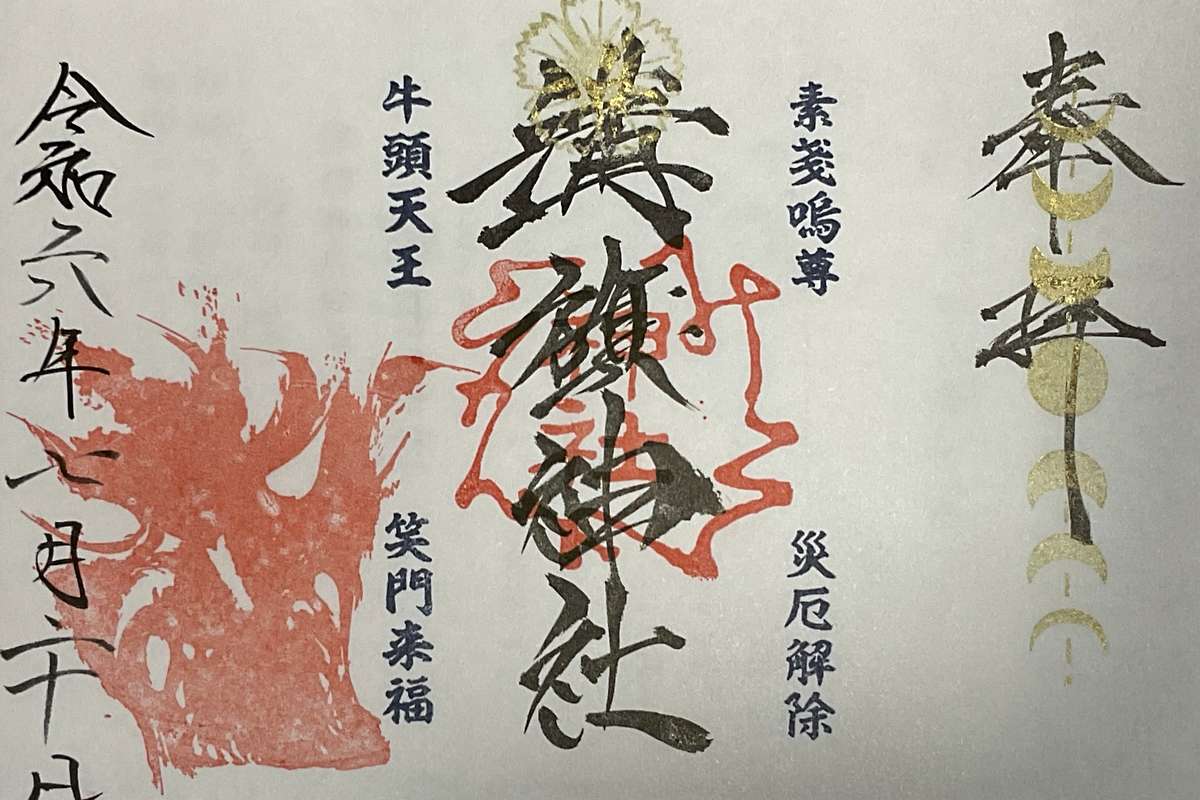 奉拝
素戔嗚尊
災厄解除
溝旗神社
牛頭天王
笑門来福
令和六年七月二十日